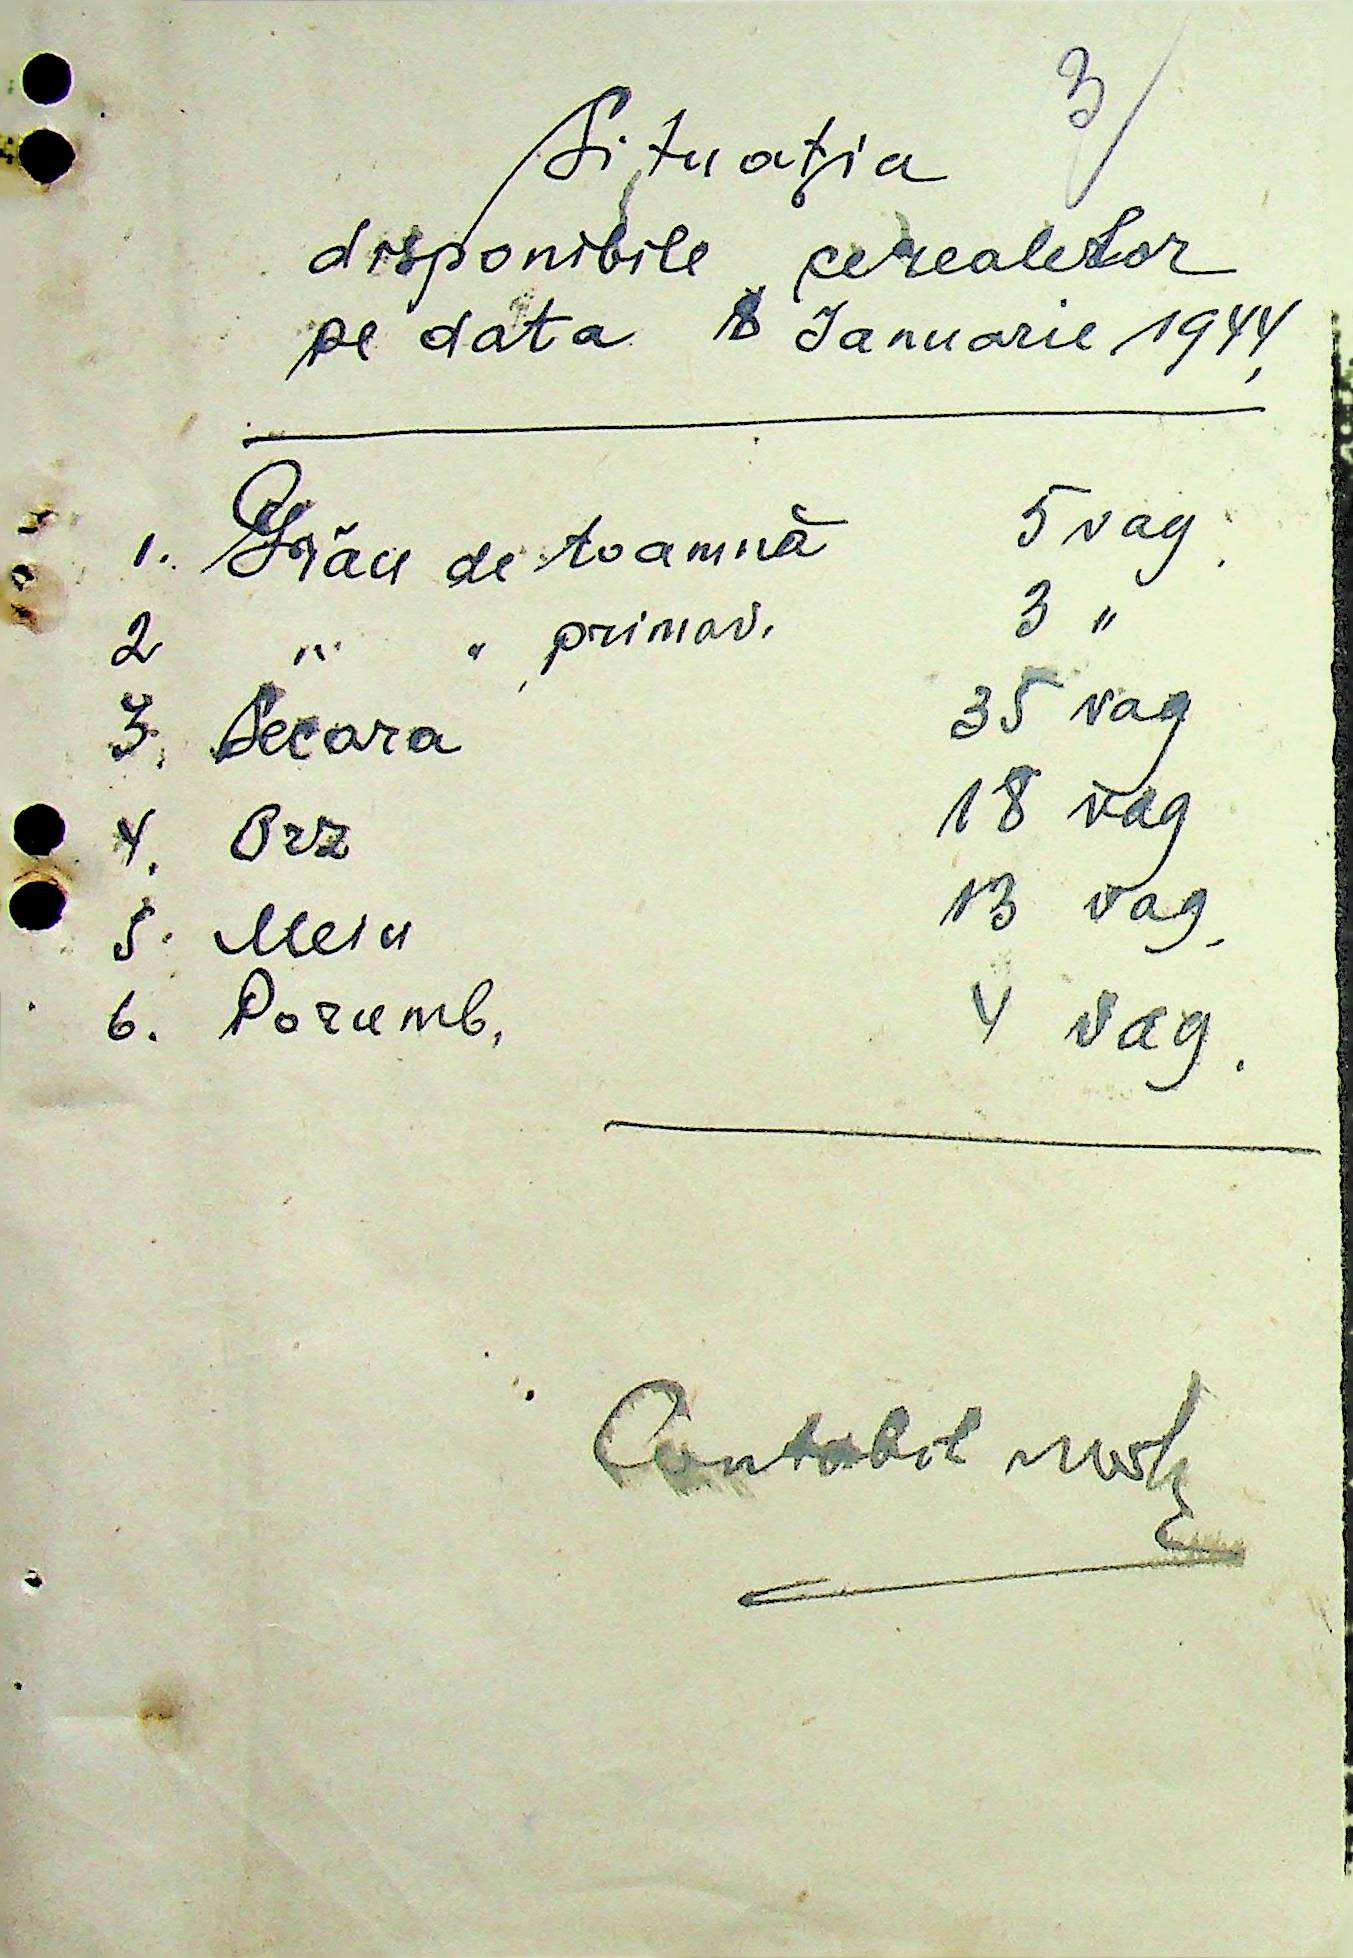 3/
Situația
disponibile cerealelor
pe data 8 Ianuarie 1944,
1. Grâu de toamnă 5 vag.
2 " " primav. 3 "
3. Secara 35 vag
4. Orz 18 vag
5. Meiu 13 vag.
6. Porumb. 4 vag.
Contabil